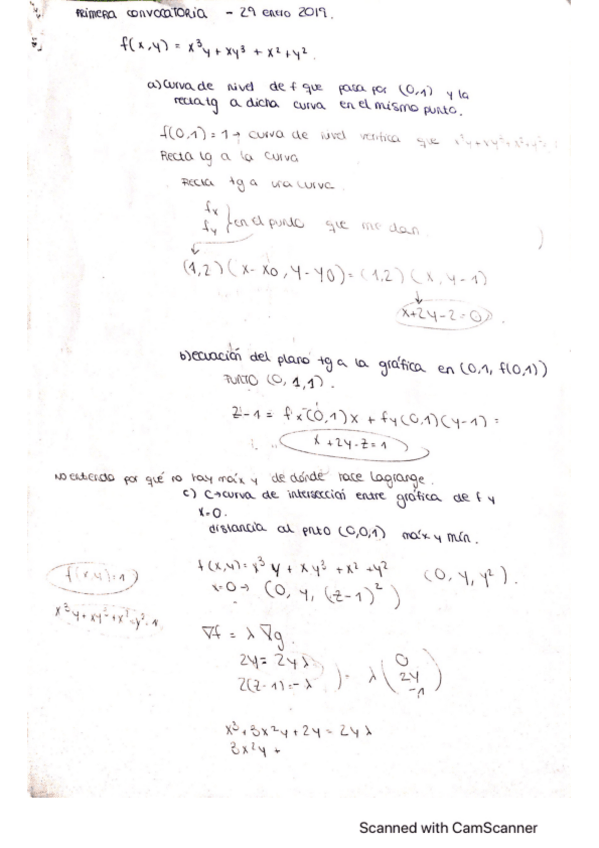 PRIMERA CONVOCATORIA - 29 ENERO 2019.
f(x,y) = x³y + xy³ + x² + y².
a) curva de nivel de f que pasa por (0,1) y la
recta tg a dicha curva en el mismo punto.
f(0,1) = 1 → curva de nivel verifica que x³y+xy³+x²+y²=1
Recta tg a la curva
Recta tg a una curva.
fx
fy } en el punto que me dan.
(1,2)(x-x0, y-y0) = (1,2)(x, y-1)
x+2y-2=0
b) ecuación del plano tg a la gráfica en (0,1, f(0,1))
PUNTO (0,1,1).
z-1 = fx(0,1)x + fy(0,1)(y-1) =
x+2y-z=1
No entiendo por qué no hay máx y de dónde hace Lagrange.
c) C→curva de intersección entre gráfica de f y
x=0.
distancia al pnto (0,0,1) máx y mín.
f(x,y)=x³y + xy³ + x² + y² (0, y, y²).
x=0 → (0, y, (z-1)²)
f(x,y)=1
x³y+xy³+x²+y²=1
∇f = λ∇g.
2y = 2yλ
2(z-1)=-λ } = λ (0 2y -1)
x³+3x²y+2y = 2yλ
3x²y +
Scanned with CamScanner